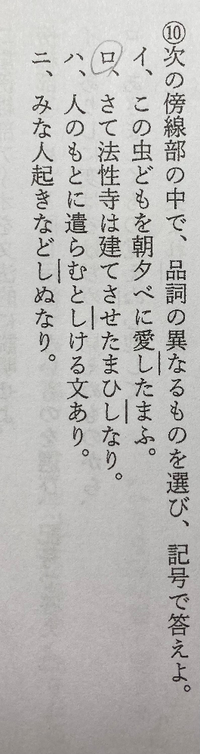 ⑩次の傍線部の中で、品詞の異なるものを選び、記号で答えよ。
イ、この虫どもを朝夕べに愛したまふ。
ロ、さて法性寺は建てさせたまひしなり。
ハ、人のもとに遣らむとしける文あり。
ニ、みな人起きなどしぬなり。